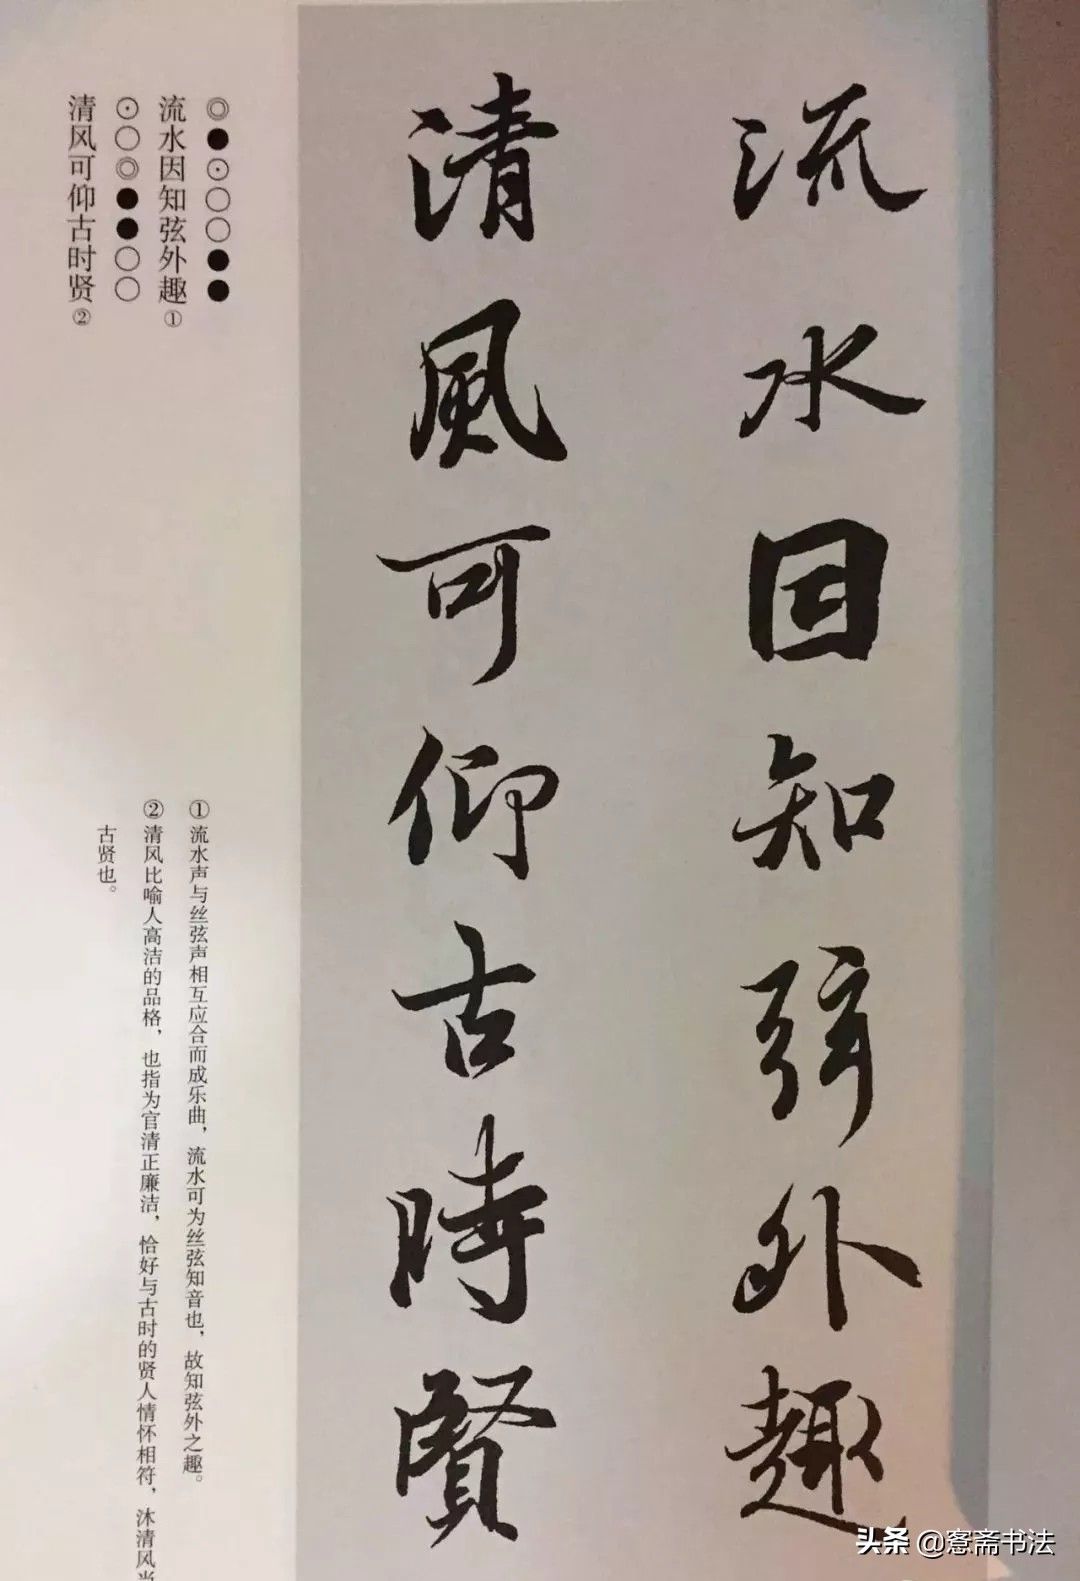 流水因知弦外趣
清風可仰古時賢
◎●⊙○○●●
流水因知弦外趣①
⊙○◎●●○○
清风可仰古时贤②
①流水声与丝弦声相互应合而成乐曲，流水可为丝弦知音也，故知弦外之趣。
②清风比喻人高洁的品格，也指为官清正廉洁，恰好与古时的贤人情怀相符，沐清风当
古贤也。
头条@寋斋书法